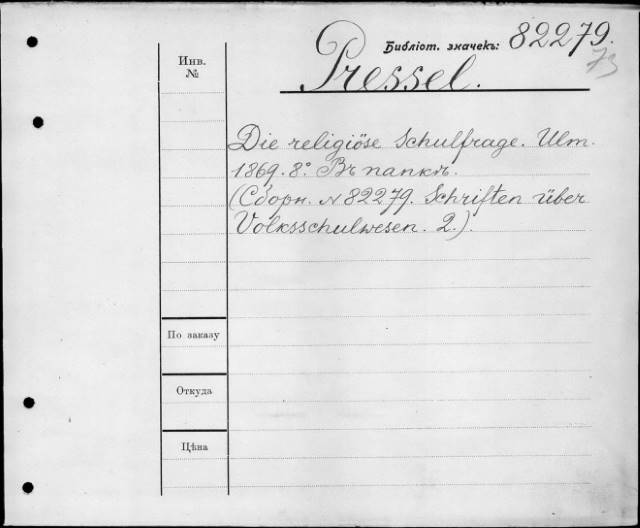 Инв.
№
Библіот. значекъ: 82279.
73
Pressel.
Die religiöse Schulfrage. Ulm.
1869. 8° Въ папкѣ.
(Сборн. N 82279. Schriften über
Volksschulwesen. 2.).
По заказу
Откуда
Цѣна